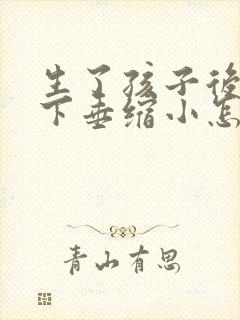 生了孩子後
下垂缩小怎
青山有思